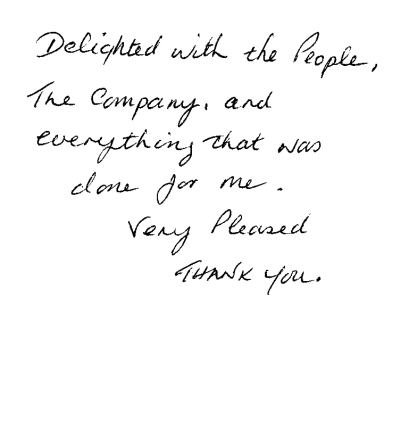 Delighted with the People,
The Company, and
everything that was
done for me.
Very Pleased
THANK YOU.